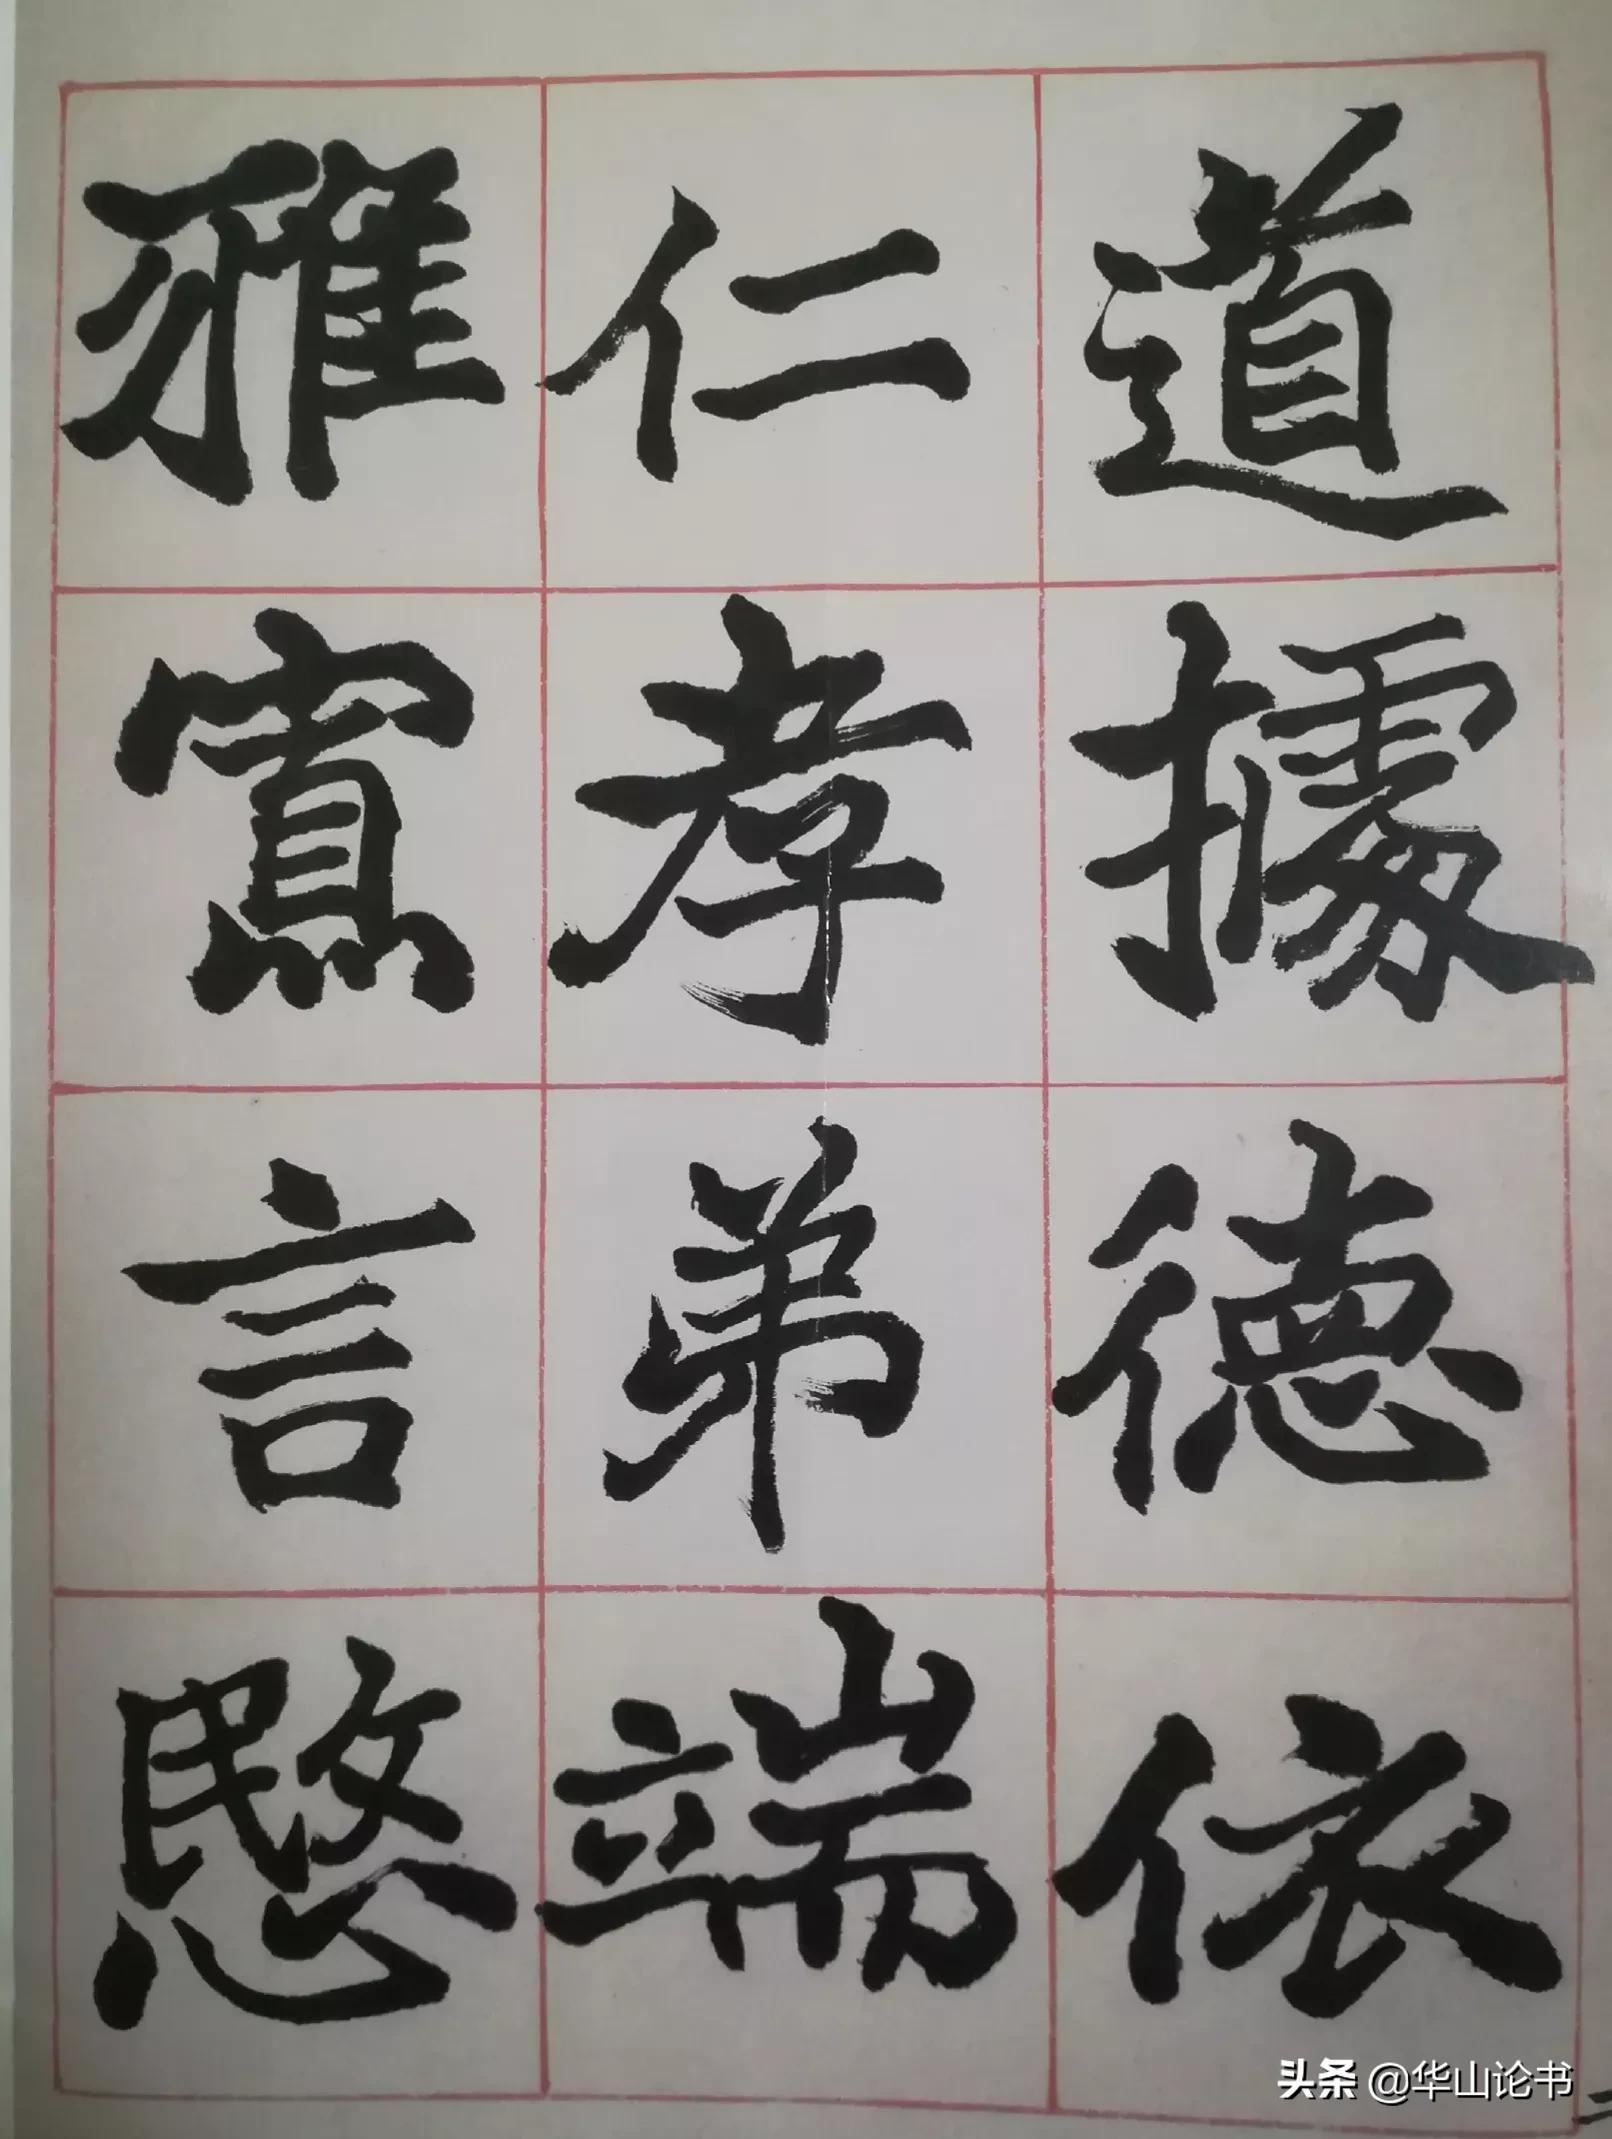 道據德依
仁孝弟端
雅寡言愍
头条 @华山论书